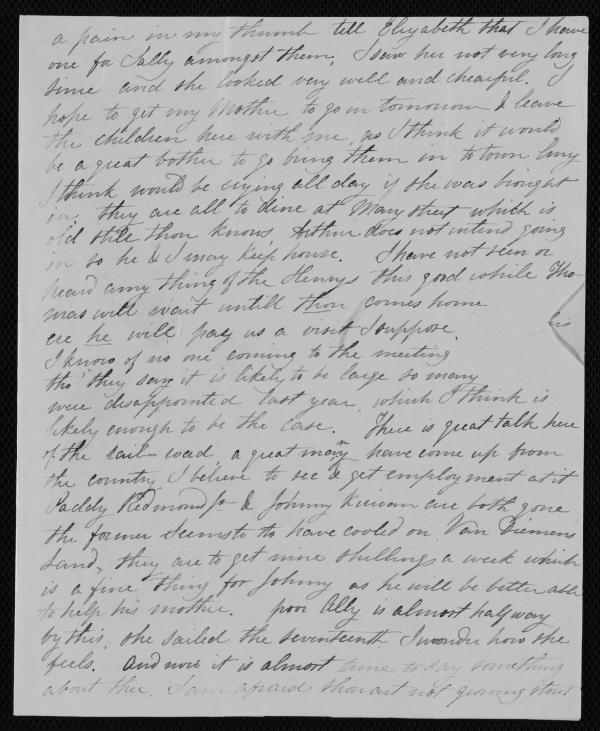 a pain in my thumb tell Elizabeth that I have
one for Sally amongst them. I saw her not very long
since and she looked very well and chearful. I
hope to get my Mother to go in tomorrow & leave
the children here with me, as I think it would
be a great bother to go bring them in to town
I think would be crying all day if she was brought
in. they are all to dine at Mary Street which is
old still thou knows Arthur does not intend going
in so he & I may keep house. I have not seen or
heard any thing of the Henrys this good while Tho-
mas will wait untill thou comes home
ere he will pay us a visit I suppose. his
I know of no one coming to the meeting
tho' they say it is likely to be large so many
were disappointed last year, which I think is
likely enough to be the case. There is great talk here
of the rail-road a great many have come up from
the country I believe to see & get employment at it
Paddy Redmond Jr & Johnny Kirwan are both gone
the former seems to to have cooled on Van Diemens
Land, they are to get nine shillings a week which
is a fine thing for Johnny as he will be better able
to help his mother. poor Ally is almost half way
by this, she sailed the seventeenth I wonder how she
feels. and now it is almost time to say something
about thee, I am afraid thou art not growing stout